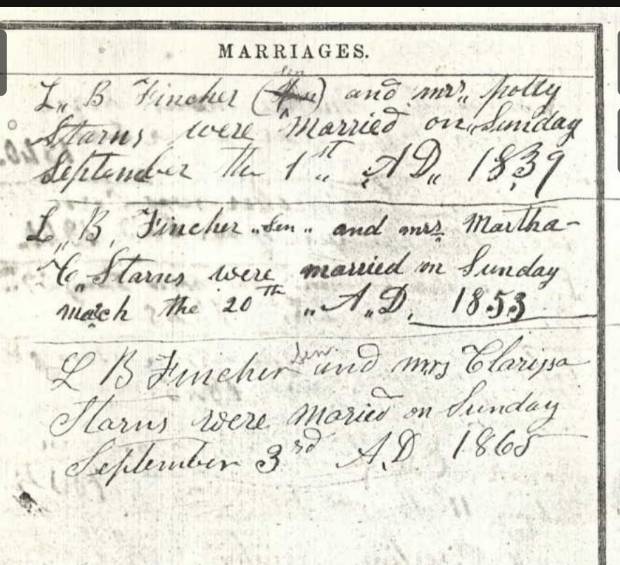 MARRIAGES.
L,, B Fincher (Sen) and mrs,, polly
Starns were married on,, Sunday
September the 1st,, AD,, 1839
L,, B, Fincher ,,Sen,, and mrs Martha
C,, Starns were married on Sunday
march the 20th ,,A,,D, 1853
L B Fincher Senr and mrs Clarissa
Starns were maried on Sunday
September 3rd A,D 1865